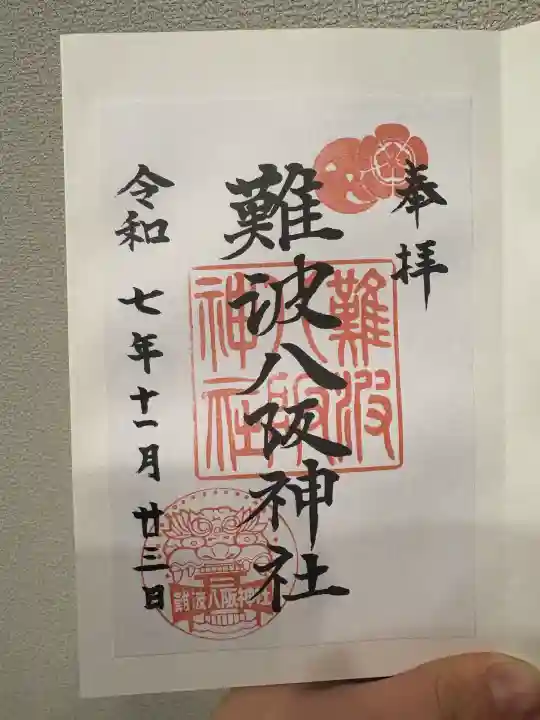 奉拝
難波八阪神社
令和七年十一月廿三日
難波
八阪
神社
難波八阪神社